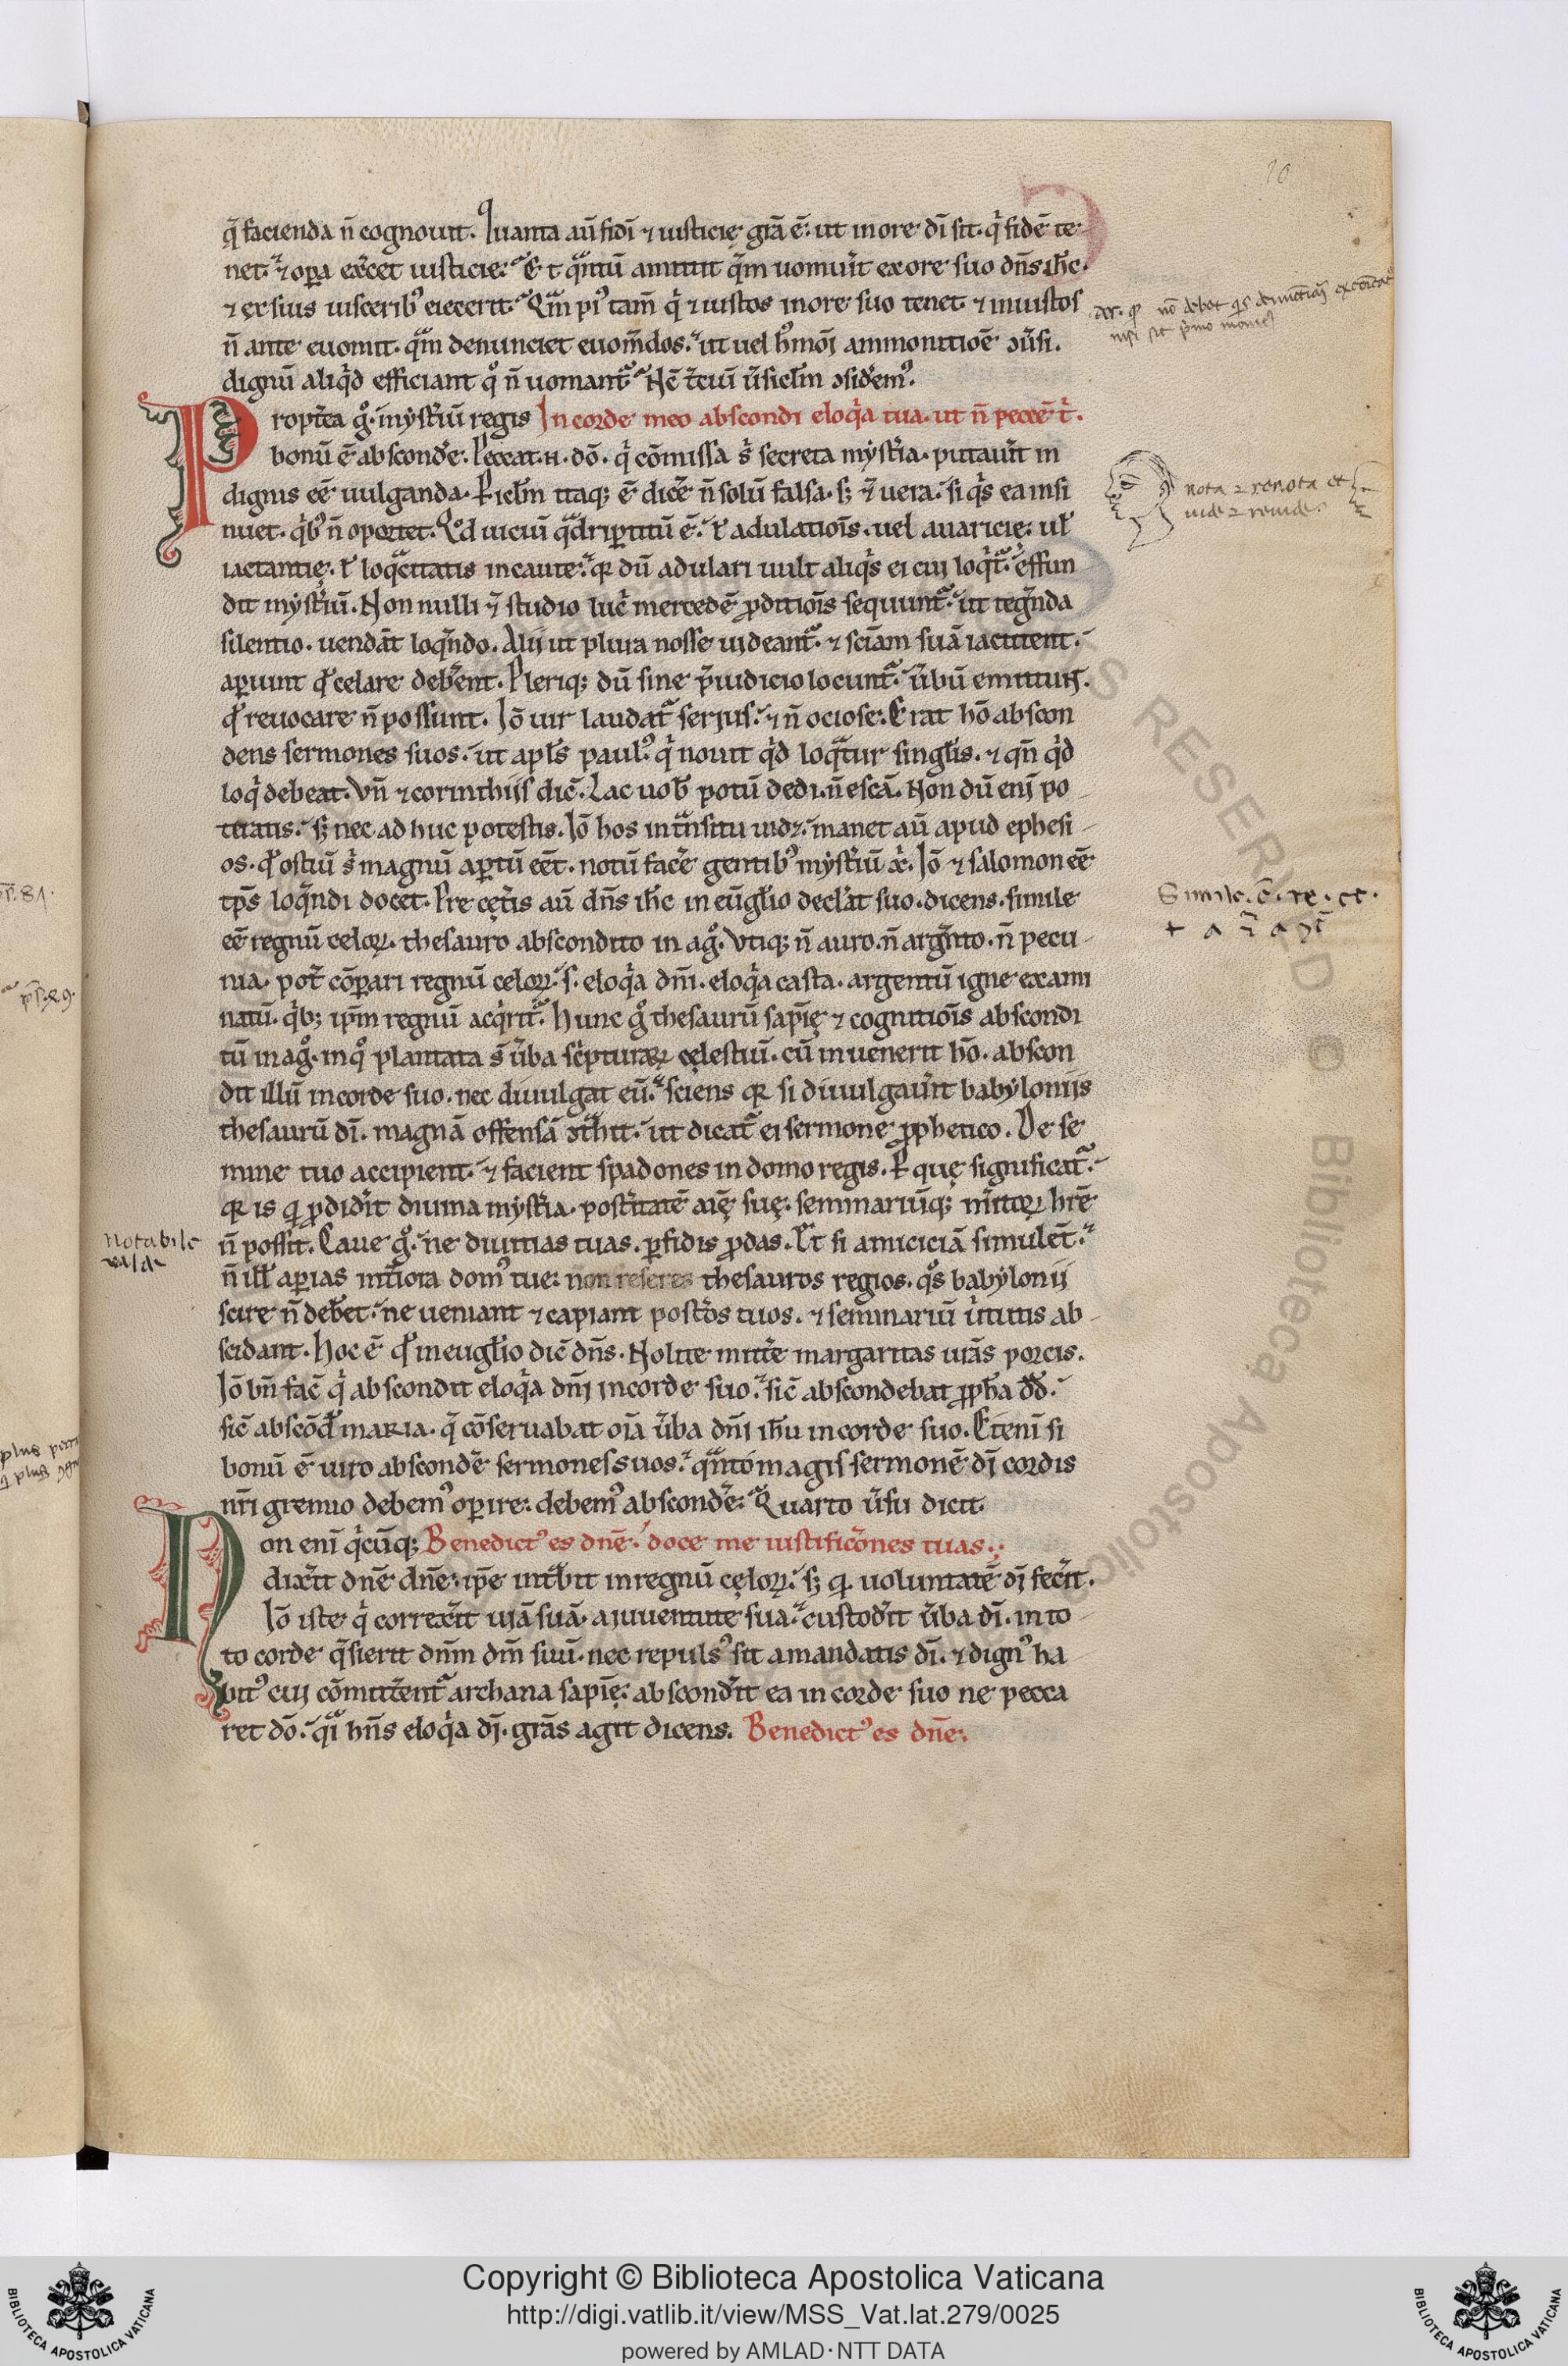 10
q̄ facienda n̄ cognouit. Quanta aū fidī ⁊ iusticię grā ē. ut in ore dī sit. qͥ fidē te
net. ⁊ oꝑa ex̄cet iusticie. Et qͣntū amittit qͣm uomuīt ex ore suo dn̄s ih̄c.
⁊ ex suis uisceribꝰ eiecerit. Qm̄ piꝰ tam̄ qͥ ⁊ iustos in ore suo tenet. ⁊ iniustos
n̄ ante euomit. qͣm denunciet euom̄dos. ut uel hꝰmōi ammonitiōē ꝯūsi.
dignū aliqͥd efficiant qͦ n̄ uomantᷓ. Nc̄ t̄ciū ūsicl̄m ꝯsiderem̄ꝰ.
Propt̄ea gͦ. myst̄iū regis In corde meo abscondi eloqͥa tua. ut n̄ peccē tͥ.
bonū ē abscond̄e. Peccat .n. dō. qͥ cōmissa sͥ secreta myst̄ia. putaūit in
dignis eē uulganda. Picl̄m itaq; ē dic̄e n̄ solū falsa. s; ⁊ uera. si qͥs ea insi
nuet. qͥbꝰ n̄ oportet. Qd uiciū qͣdriꝑtitū ē. ł adulatiōis. uel auaricię. ul̄
iactantię. ł loqͣcitatis incaute. qꝛ dū adulari uult aliqͥs ei cui loqͥtᷓ. effun
dit myst̄iū. Non nulli ⁊ studio luc̄ mercedē ꝓditiōis sequuntᷓ. ut tegēnda
silentio. uendāt loqēndo. Alij ut plura nosse uideantᷓ. ⁊ sciām suā iactitent.
aꝑiunt qd̄ celare deb̄ent. Pleriq; dū sine p̄iudicio locuntᷓ. ūbū emittūt.
qd̄ reuocare n̄ possunt. Iō uir laudatᷓ serius. ⁊ n̄ ociose. Erat hō abscon
dens sermones suos. ut apl̄s paulꝰ. qͥ nouit qͥd loqͣtur singl̄is. ⁊ qn̄ qͥd
loqͥ debeat. Vn̄ ⁊ corinthijs dic̄. Lac uob̄ potū dedi. n̄ escā. Non dū enī po
teratis. s; nec ad huc potestis. Iō hos in tͣnsitu uidꝫ. manet aū apud ephesi
os. qd̄ ostiū sͥ magnū aꝑtū eēt. notū fac̄e gentibꝰ myst̄iū xͥ. Iō ⁊ salomon eē
tp̄s loqēndi docet. Pre cęt̄is aū dn̄s ih̄c in eūgl̄io declāt suo. dicens. simile
eē regnū celoꝝ. thesauro abscondito in agͦ. Vtiq; n̄ auro. n̄ argēnto. n̄ pecu
nia. pot̄ cōꝑari regnū celoꝝ. s. eloqͥa dn̄i. eloqͥa casta. argentū igne exami
natū. qͥb; ip̄m regnū acqͥritᷓ. Hunc gͦ thesaurū sapīę ⁊ cognitiōis abscondi
tū in agͦ. in qͦ plantata s̄ ūba scͥpturaꝝ cęlestiū. cū inuenerit hō. abscon
dit illū in corde suo. nec diuulgat eū. sciens qꝛ si diuulgaūit babylonijs
thesaurū dī. magnā offensā ꝯtͣhit. ut dicatᷓ ei sermone ꝓphetico. De se
mine tuo accipient. ⁊ facient spadones in domo regis. P quę significatᷓ.
qꝛ is q̇ ꝓdid̄it diuina myst̄ia. post̄itatē aię̄ suę. seminariūq; m̄itoꝝ hr̄ē
n̄ possit. Caue gͦ. ne diuitias tuas. ꝑfidis ꝓdas. Et si amiciciā simulēt.
n̄ ill̄ aꝑias int̄iora domꝰ tue. non reseres thesauros regios. qͦs babylonij
scire n̄ deb̄et. ne ueniant ⁊ capiant post̄os tuos. ⁊ seminariū ūtutis ab
scidant. Hoc ē qd̄ in eugl̄io dic̄ dn̄s. Nolite mitt̄e margaritas urās porcis.
Iō bn̄ fac̄ qͥ abscondit eloqͥa dn̄i in corde suo. sic̄ abscondebat ꝓph̄a dd̄.
sic̄ abscōd̄ maria. q̄ cōseruabat oīa ūba dn̄i ih̄u in corde suo. Etenī si
bonū ē uiro abscond̄e sermones suos. qͣnto magis sermonē dī cordis
nr̄i gremio debemꝰ oꝑire. debemꝰ abscond̄e. Quarto ūsu dicit.
Non enī qͥcūq; Benedictꝰ es dn̄e. doce me iustificōnes tuas.
dix̄it dn̄e dn̄e. ip̄e intͣbit in regnū cęloꝝ. s; q̇ uoluntatē dī fec̄it.
Iō iste qͥ correx̄it uiā suā. a iuuentute sua. custod̄it ūba dī. in to
to corde q̄sierit dn̄m dm̄ suū. nec repulsꝰ sit a mandatis dī. ⁊ dignꝰ ha
bitꝰ cui cōmitt̄entᷓ archana sapīę. abscond̄it ea in corde suo ne pecca
ret dō. qͣi hn̄s eloqͥa dī. grās agit dicens. Benedictꝰ es dn̄e.
nisi sit p̄mo
nota ⁊ renota et
uide ⁊ reuide
Simile. ē. re. ce.
notabile
ualde
Copyright © Biblioteca Apostolica Vaticana
http://digi.vatlib.it/view/MSS_Vat.lat.279/0025
powered by AMLAD·NTT DATA
BIBLIOTECA APOSTOLICA VATICANA
BIBLIOTECA APOSTOLICA VATICANA